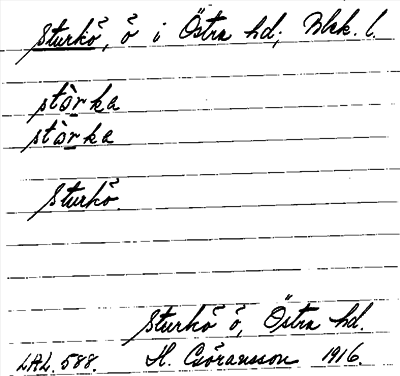 Sturkö, ö i Östra hd; Blek. l.
stòrka
stòrka
Sturkö.
Sturkö ö, Östra hd.
LAL. 588. H. Göransson 1916.